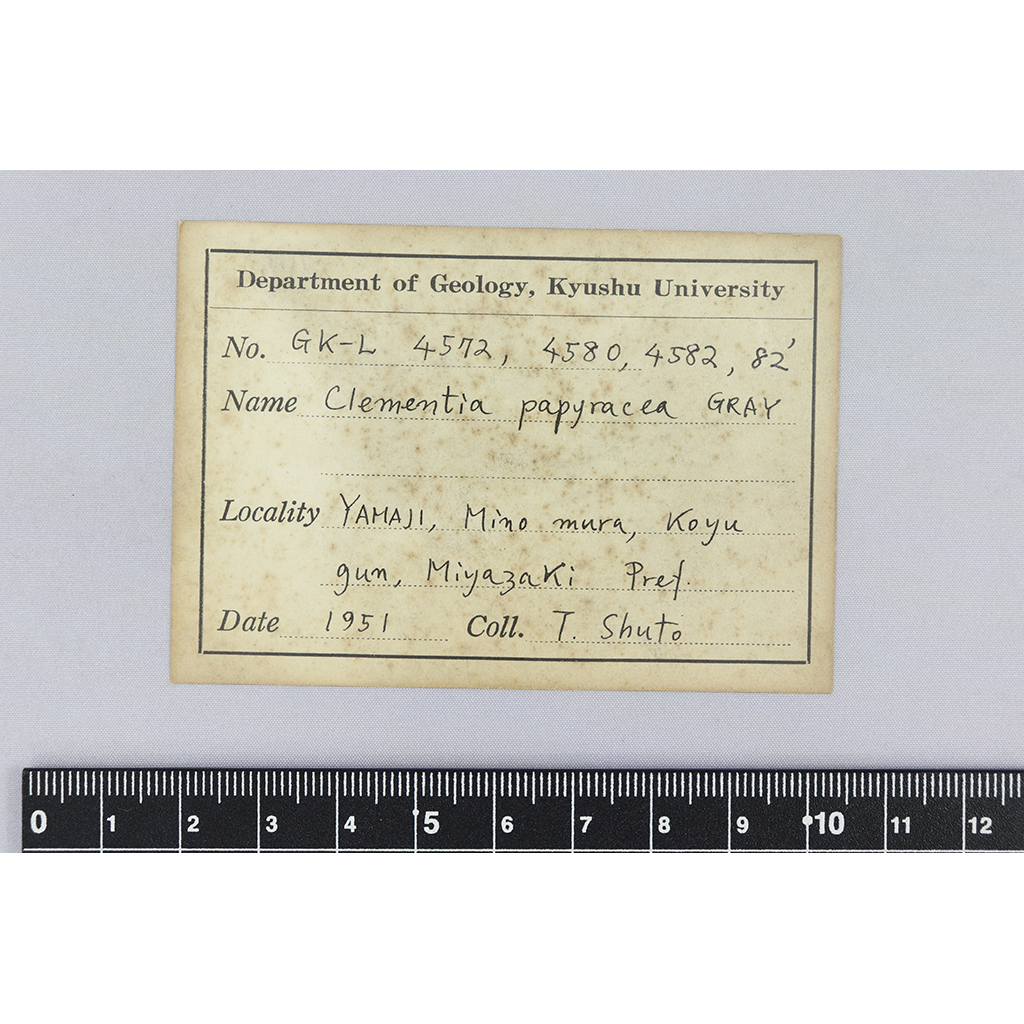 Department of Geology, Kyushu University
No. GK-L 4572, 4580, 4582, 82'
Name Clementia papyracea GRAY
Locality YAMAJI, Mino mura, Koyu
gun, Miyazaki Pref.
Date 1951 Coll. T. Shuto
0 1 2 3 4 5 6 7 8 9 10 11 12